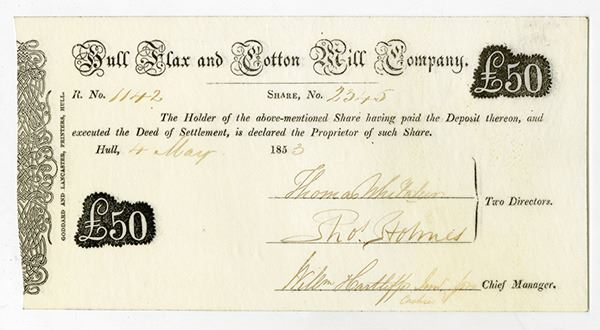 Hull Flax and Cotton Mill Company.
£50
R. No. 1142 SHARE, No. 2345
The Holder of the above-mentioned Share having paid the Deposit thereon, and
executed the Deed of Settlement, is declared the Proprietor of such Share.
Hull, 4 May 1853
GODDARD AND LANCASTER, PRINTERS, HULL.
£50
Thomas
Two Directors.
Thos. Holmes
Chief Manager.